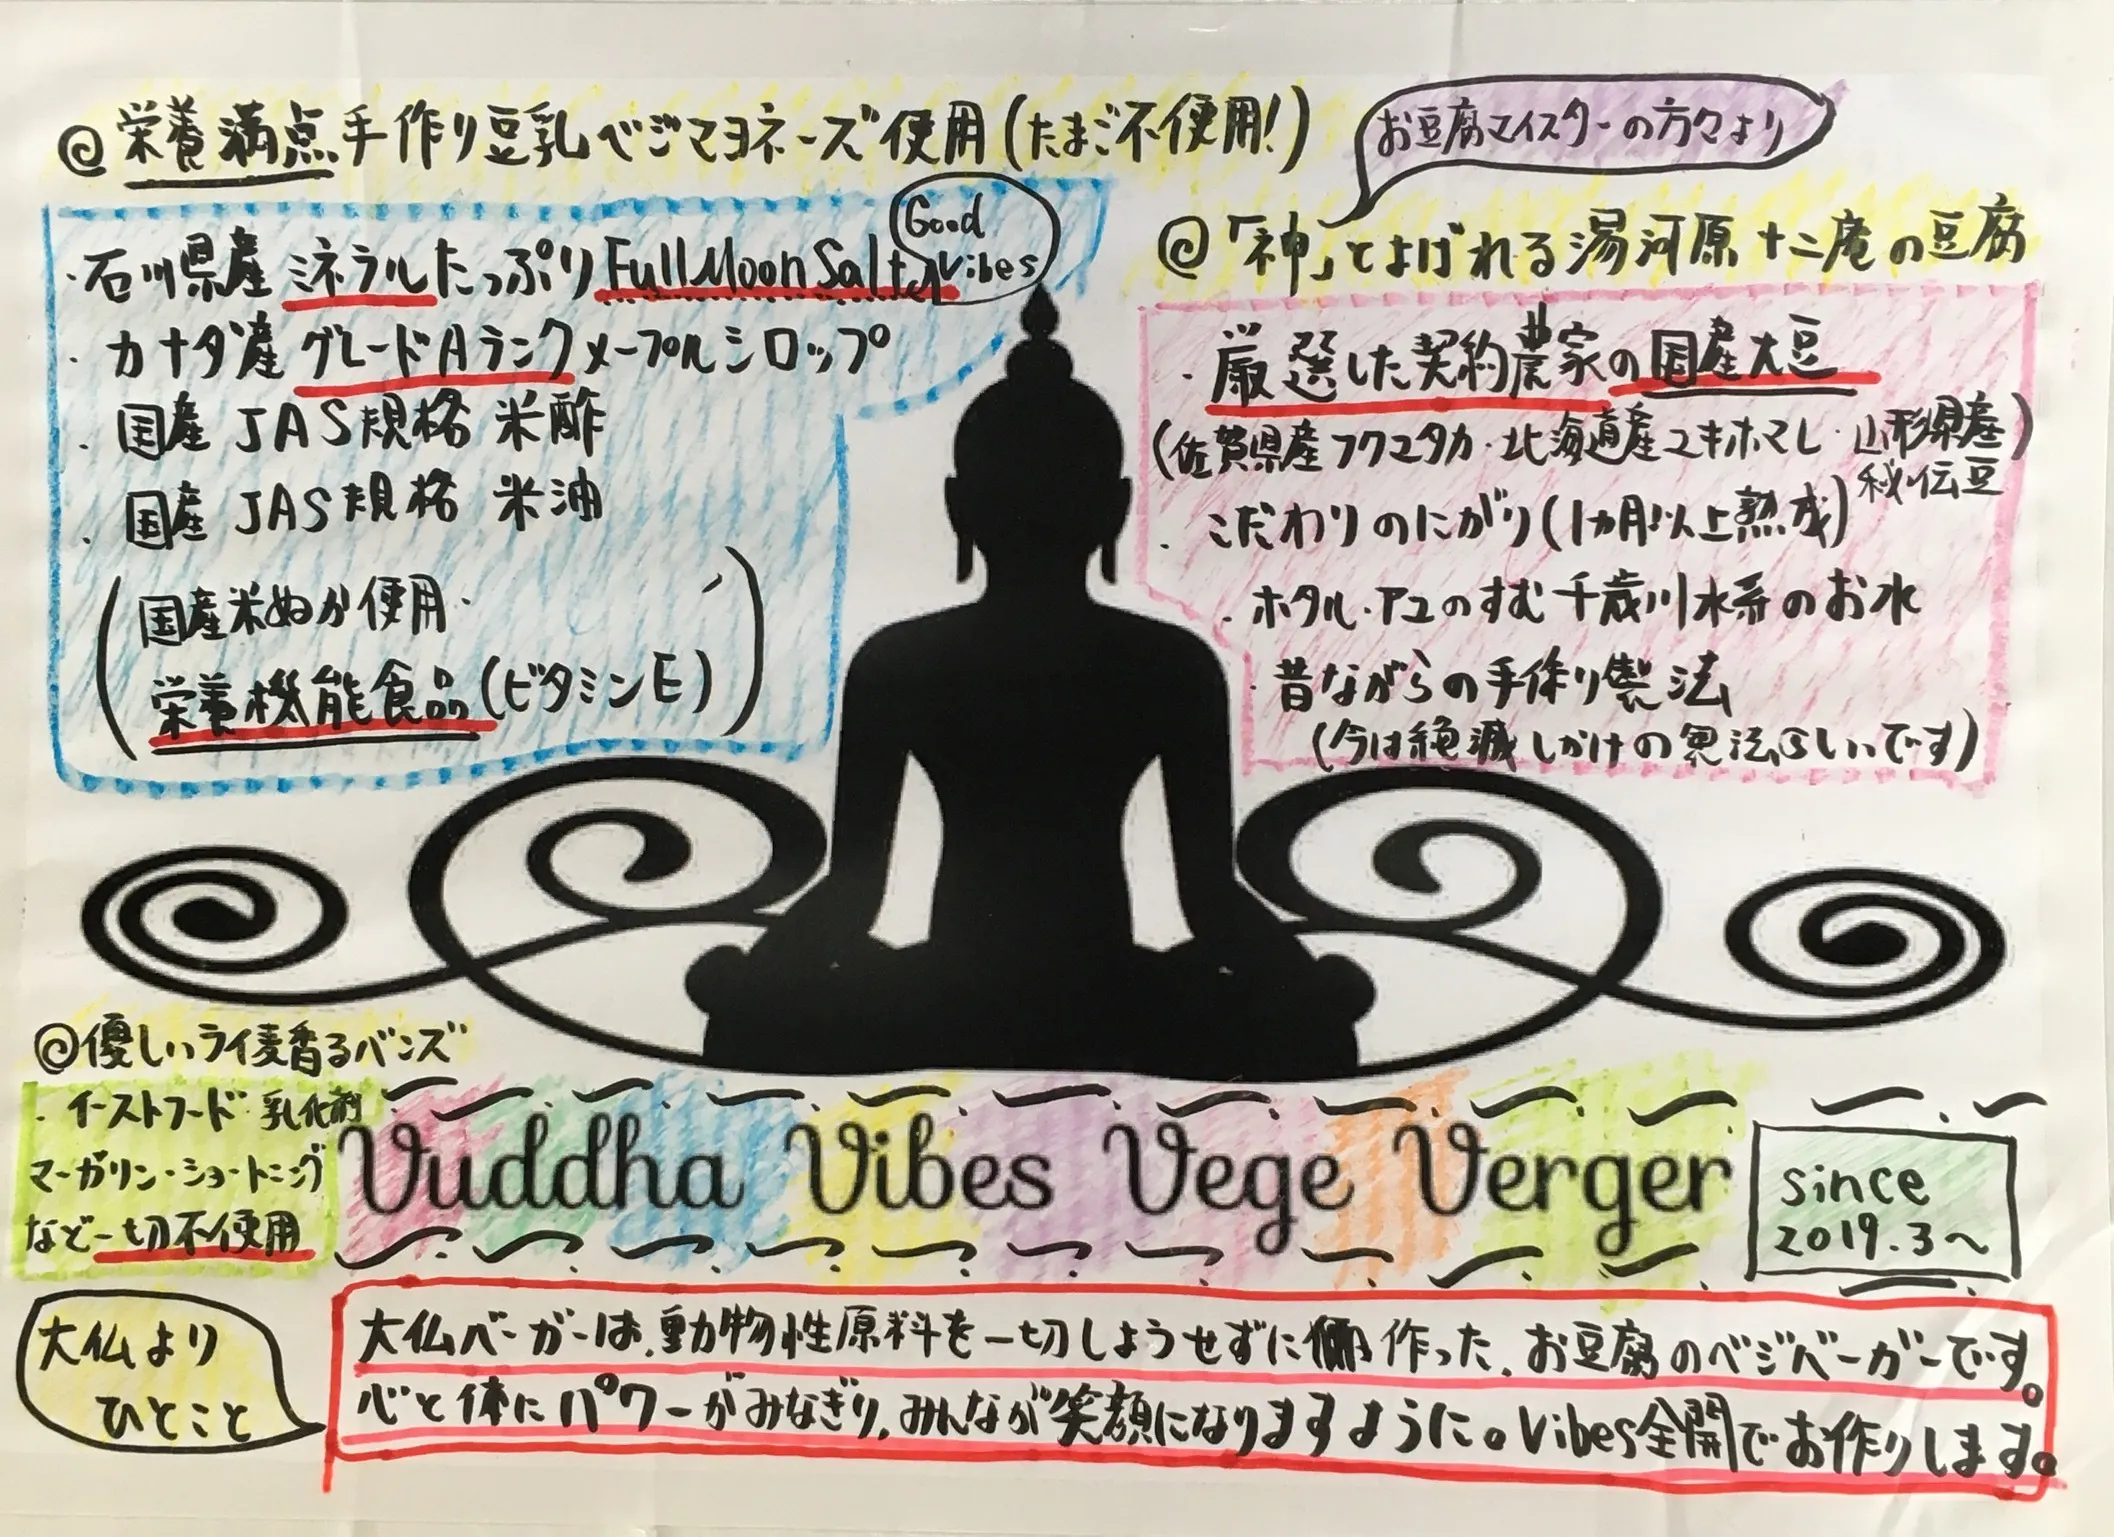 @栄養満点手作り豆乳ベジマヨネーズ使用(たまご不使用!)
・石川県産ミネラルたっぷりFullMoonSalt
Good
Vibes
・カナダ産グレードAランクメープルシロップ
・国産JAS規格 米酢
・国産JAS規格 米油
(国産米ぬか使用・
栄養機能食品(ビタミンE))
お豆腐マイスターの方々より
@「神」とよばれる湯河原十二庵の豆腐
・厳選した契約農家の国産大豆
(佐賀県産フクユタカ・北海道産ユキホマレ・山形県産
秘伝豆)
・こだわりのにがり(1カ月以上熟成)
・ホタル・アユのすむ千歳川水系のお水
・昔ながらの手作り製法
(今は絶滅しかけの製法らしいです)
@優しいライ麦香るバンズ
・イーストフード・乳化剤
マーガリン・ショートニング
など一切不使用
Vuddha Vibes Vege Verger
since
2019.3〜
大仏より
ひとこと
大仏バーガーは、動物性原料を一切しようせずに作った、お豆腐のベジバーガーです。
心と体にパワーがみなぎり、みんなが笑顔になりますように。Vibes全開でお作りします。